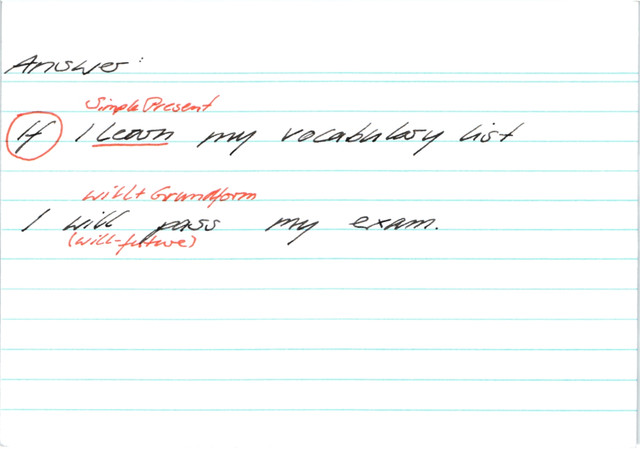 Answer:
Simple Present
If I learn my vocabulary list
will + Grundform
I will pass my exam.
(will-future)